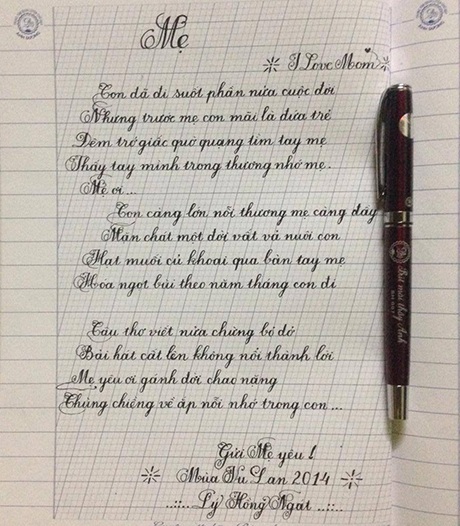 Mẹ
I Love Mom
Con đã đi suốt phân nửa cuộc đời
Nhưng trước mẹ con mãi là đứa trẻ
Đêm trở giấc quờ quạng tìm tay mẹ
Thấy tay mình trong thương nhớ mẹ.
Mẹ ơi...
Con càng lớn nỗi thương mẹ càng đầy
Mặn chát một đời vất vả nuôi con
Hạt muối củ khoai qua bàn tay mẹ
Hóa ngọt bùi theo năm tháng con đi
Câu thơ viết nửa chừng bỏ dở
Bài hát cất lên không nổi thành lời
Mẹ yêu ơi gánh đời chao nặng
Chúng chiềng về ắp nỗi nhớ trong con...
Gửi Mẹ yêu!
Mùa Vu Lan 2014
..::.. Lý Hồng Ngát ..::..
Bút mài thầy Ánh